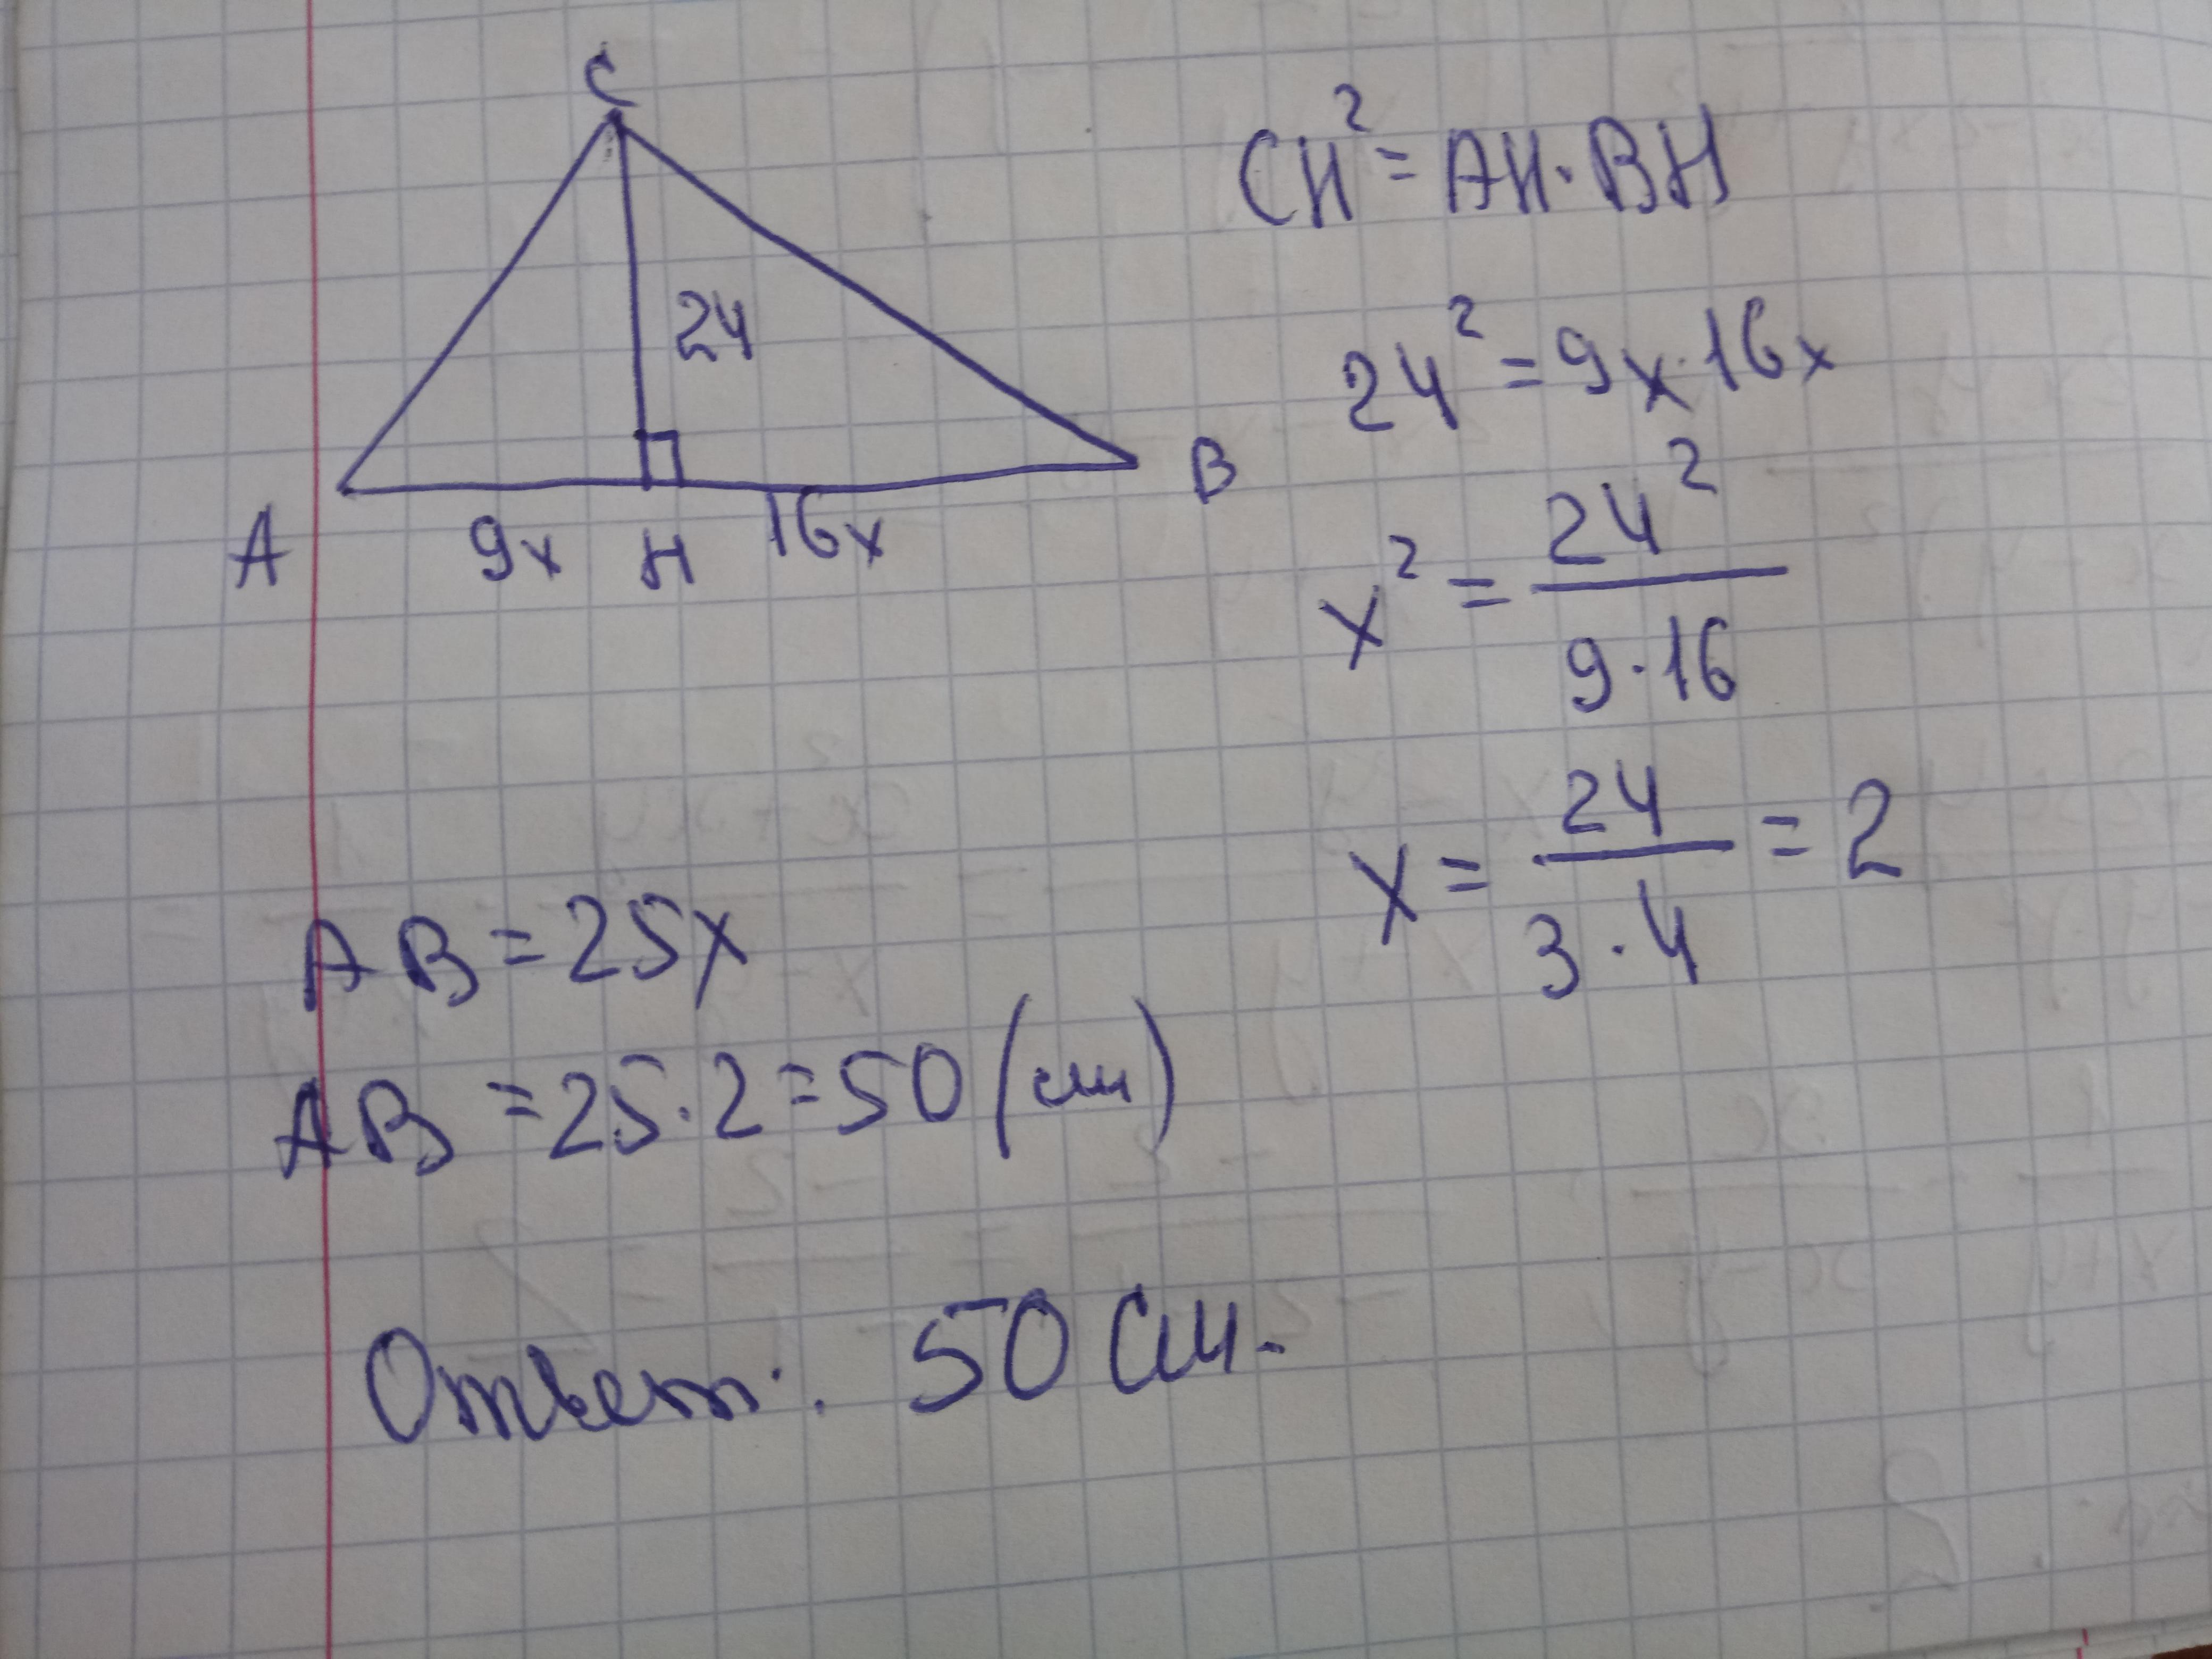 C
24
A 9x H 16x B
CH² = AH · BH
24² = 9x · 16x
x² = 24² / 9 · 16
x = 24 / 3 · 4 = 2
AB = 25x
AB = 25 · 2 = 50 (см)
Ответ: 50 см.